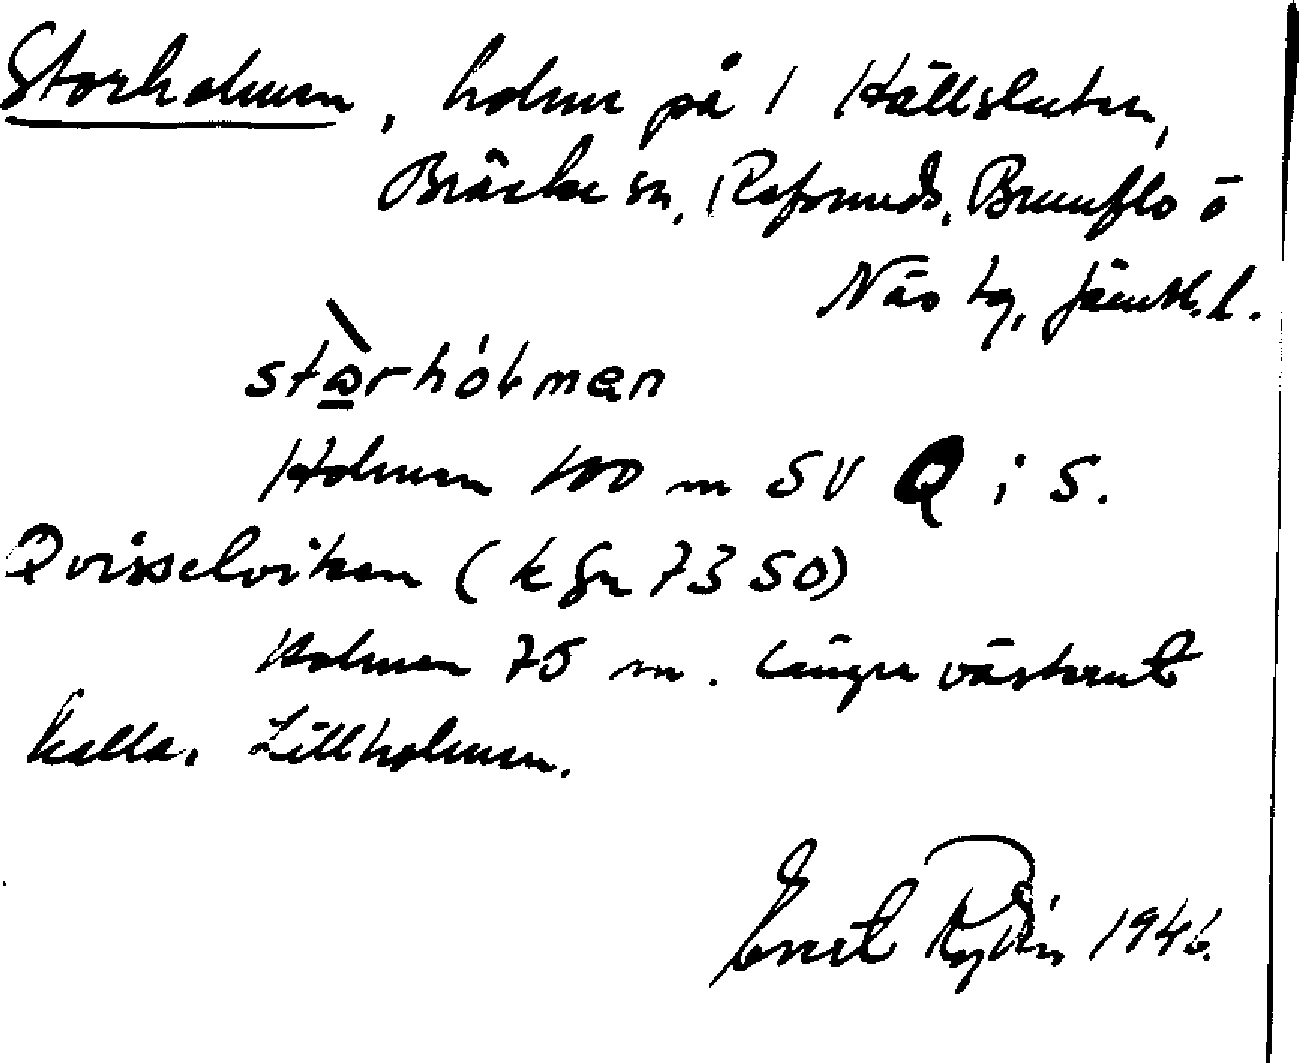 Storholmen, holme på / Hällsluten,
Bräcke sn, Refsunds, Brunflo o
Näs tg, Jämtl. l.
stòrhólmen
Holmen 100 m SV Q i S.
Qvisselviken (k fn 7350)
Holmen 75 m. längre västerut
kallas Lillholmen.
1946.